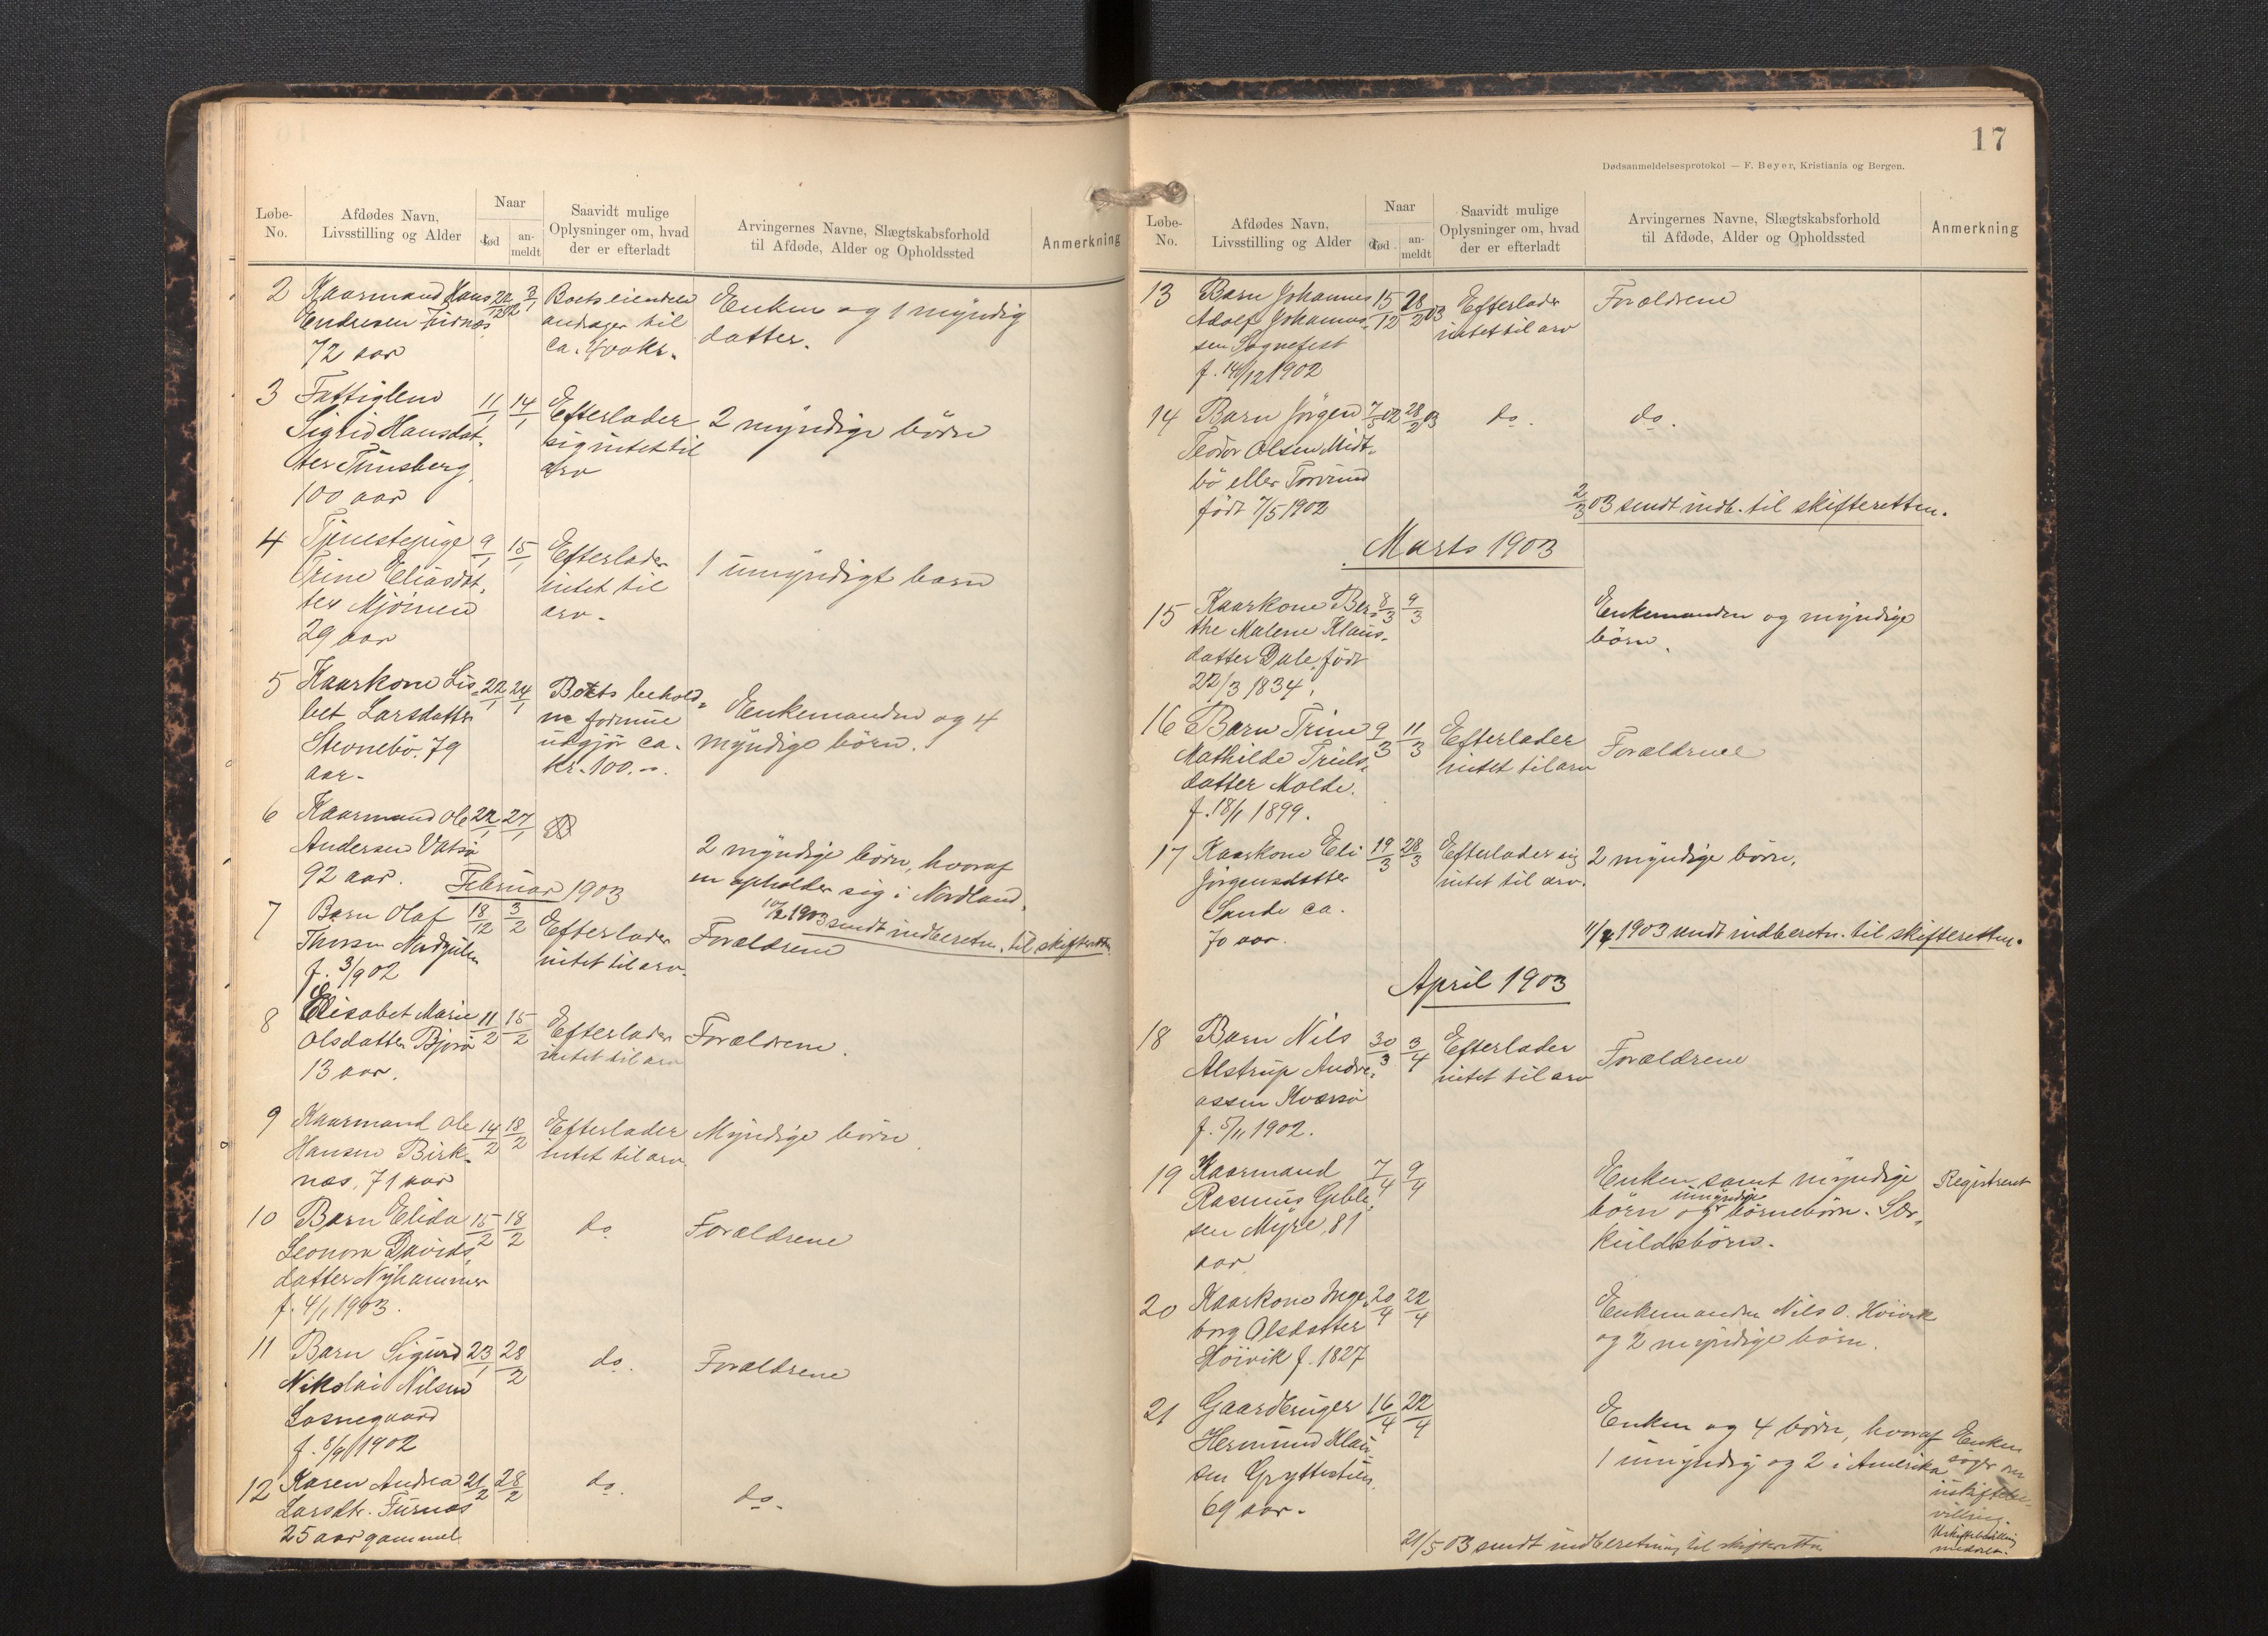 Løbe-
No.
Afdødes Navn,
Livsstilling og Alder
Naar
død
an-
meldt
Saavidt mulige
Oplysninger om, hvad
der er efterladt
Arvingernes Navne, Slægtskabsforhold
til Afdøde, Alder og Opholdssted
Anmerkning
2 Kaarmand Hans 22/12 02 3/1 Boets eiendele Enken og 1 myndig
Endresen Furnæs andrager til datter.
72 aar ca. 400 kr.
3 Fattiglem 11/1 14/1 Efterlader 2 myndige børn
Sigrid Hansdat-
sig intet til
ter Tünsberg
arv
100 aar
4 Tjenestepige 9/1 15/1 Efterlader 1 umyndigt barn
Trine Eliasdat-
intet til
ter Mjömen
arv.
29 aar
5 Kaarkone Lis- 22/1 24/1 Boets behold- Enkemanden og 4
bet Larsdatter ne formue myndige börn.
Stennebö. 79 udgjör ca.
aar. kr. 100.-.
6 Kaarmand Ole 22/1 27/1
Andersen Vatsö 2 myndige börn, hvoraf
92 aar. en opholder sig i Nordland.
Februar 1903
10/2 1903 sendt indberetn. til skifteretten
7 Barn Olaf 18/12 3/2 Efterlader Forældrene
Thorsen Nordgulen intet til arv.
f. 3/9 02
8 Elisabet Marie 11/2 15/2 Efterlader Forældrene.
Olsdatter Bjorö intet til arv
13 aar.
9 Kaarmand Ole 14/2 18/2 Efterlader Myndige börn
Hansen Birk- intet til arv.
næs, 71 aar
10 Barn Elida 15/2 18/2 do Forældrene
Leonora Davids-
datter Nyhammer
f. 4/1 1903.
11 Barn Sigurd 23/1 28/2 do. Forældrene
Nikolai Nilsen
Losnegaard
f. 8/9 1902
12 Karen Andrea 21/2 28/2 do. do.
Larsdtr. Furnæs
25 aar gammel
17
Dødsanmeldelsesprotokol — F. Beyer, Kristiania og Bergen.
Løbe-
No.
Afdødes Navn,
Livsstilling og Alder
Naar
død
an-
meldt
Saavidt mulige
Oplysninger om, hvad
der er efterladt
Arvingernes Navne, Slægtskabsforhold
til Afdøde, Alder og Opholdssted
Anmerkning
13 Barn Johannes 15/12 28/2 03 Efterlader Forældrene
Adolf Johannes- intet til arv
sen Sognefest
f. 14/12 1902
14 Barn Jörgen 7/5 02 28/2 03 do. do.
Teodor Olsen Midt-
bö eller Torvund
födt 7/5 1902
2/3 03 sendt indb. til skifteretten.
Marts 1903
15 Kaarkone Ber- 8/3 9/3 Enkemanden og myndige
the Malene Klaus- börn.
datter Dale, födt
22/3 1834.
16 Barn Trine 9/3 11/3 Efterlader Forældrene
Mathilde Truls- intet til arv
datter Molde.
f. 18/1 1899.
17 Kaarkone Eli 19/3 28/3 Efterlader sig 2 myndige börn.
Jörgensdatter intet til arv.
Sande ca.
70 aar.
11/4 1903 sendt indberetn. til skifteretten.
April 1903
18 Barn Nils 30/3 3/4 Efterlader Forældrene
Alstrup Andre- intet til arv
assen Kversö
f. 5/11 1902.
19 Kaarmand 7/4 9/4 Enken samt myndige Registreret
Rasmus Gabli- umyndige
sen Myre, 81 börn og börnebörn. Sær-
aar kuldsbörn.
20 Kaarkone Inge- 20/4 22/4 Enkemanden Nils O. Höivik
borg Olsdatter og 2 myndige börn.
Höivik f. 1827
21 Gaardbruger 16/4 22/4 Enken og 4 börn, hvoraf Enken
Hermund Klau- 1 umyndig og 2 i Amerika söger om
sen Gryttestuen uskiftebe-
69 aar. villing.
Uskiftebevilling
meddelt.
21/5 03 sendt indberetning til skifteretten